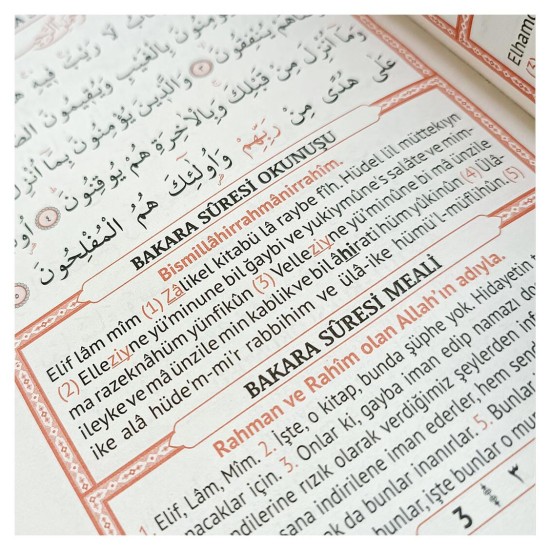 لَا رَيْبَ فِيهِ
يُؤْمِنُونَ بِالْغَيْبِ وَيُقِيمُونَ
يُنْفِقُونَ ﴿٣﴾ وَالَّذِينَ يُؤْمِنُونَ بِمَا أُنْزِلَ
وَمَا أُنْزِلَ مِنْ قَبْلِكَ وَبِالْآخِرَةِ هُمْ يُوقِنُونَ ﴿٤﴾
عَلَى هُدًى مِنْ رَبِّهِمْ وَأُولَئِكَ هُمُ الْمُفْلِحُونَ
BAKARA SÛRESİ OKUNUŞU
Bismillâhirrahmânirrahîm.
Elif lâm mîm (1) Zâlikel kitabü lâ raybe fîh. Hüdel lil müttekıyn
(2) Elleziyne yü'minune bil ğaybi ve yukiymûne's salâte ve mim-
ma razeknâhüm yünfikûn (3) Velleziyne yü'minûne bi mâ ünzile
ileyke ve mâ ünzile min kablik ve bil âhirati hüm yûkinûn (4) Ülâ-
ike alâ hüde'm-mi'r rabbihim ve ülâ-ike hümü'l-müflihûn. (5)
BAKARA SÛRESİ MEALİ
Rahman ve Rahîm olan Allah'ın adıyla.
1. Elif, Lâm, Mîm. 2. İşte, o kitap, bunda şüphe yok. Hidayetin
nacaklar için. 3. Onlar ki, gayba iman edip namazı
ndilerine rızık olarak verdiğimiz şeylerden
sana indirilene iman ederler, hem
ak da bunlar inanırlar. 5. Bunlar
bunlar, işte bunlar o
3 ٣
Elhamd